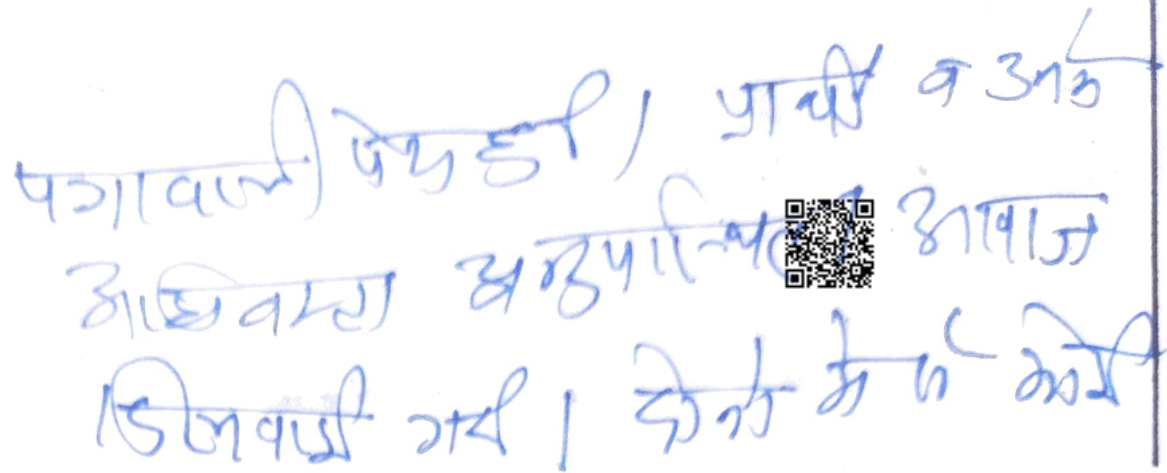 पत्रावली पेश हुई। प्रार्थी व उनके
अधिवक्ता अनुपस्थित। आवाज
दिलवाई गयी। दोनों में से कोई